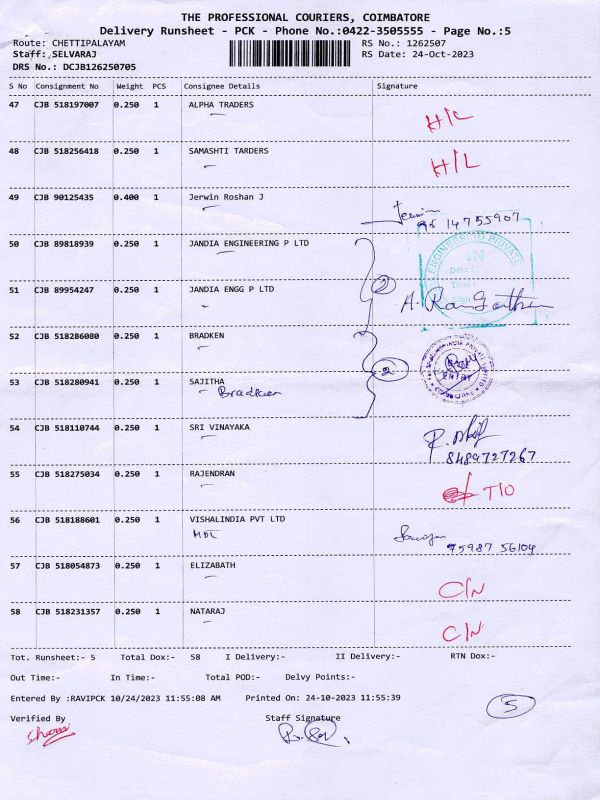 THE PROFESSIONAL COURIERS, COIMBATORE
Delivery Runsheet - PCK - Phone No.:0422-3505555 - Page No.:5
Route: CHETTIPALAYAM RS No.: 1262507
Staff: SELVARAJ RS Date: 24-Oct-2023
DRS No.: DCJB126250705
S No Consignment No Weight PCS Consignee Details Signature
47 CJB 518197007 0.250 1 ALPHA TRADERS H/L
48 CJB 518256418 0.250 1 SAMASHTI TARDERS H/L
49 CJB 90125435 0.400 1 Jerwin Roshan J Jerwin
14755907
50 CJB 89818939 0.250 1 JANDIA ENGINEERING P LTD
ENGINEERING PRIVATE
IN
Date:
Time:
Sign
51 CJB 89954247 0.250 1 JANDIA ENGG P LTD 2
52 CJB 518286080 0.250 1 BRADKEN
2
ENTRY
53 CJB 518280941 0.250 1 SAJITHA
Bradken
54 CJB 518110744 0.250 1 SRI VINAYAKA
8489727267
55 CJB 518275034 0.250 1 RAJENDRAN T/O
56 CJB 518188601 0.250 1 VISHALINDIA PVT LTD
MDL 95987 56104
57 CJB 518054873 0.250 1 ELIZABATH C/N
58 CJB 518231357 0.250 1 NATARAJ C/N
Tot. Runsheet:- 5 Total Dox:- 58 I Delivery:- II Delivery:- RTN Dox:-
Out Time:- In Time:- Total POD:- Delvy Points:-
Entered By :RAVIPCK 10/24/2023 11:55:08 AM Printed On: 24-10-2023 11:55:39
5
Verified By Staff Signature